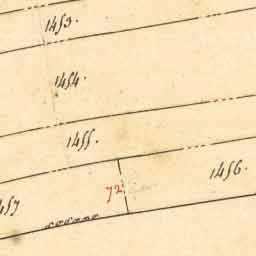 1453.
1454.
1455.
1456.
72